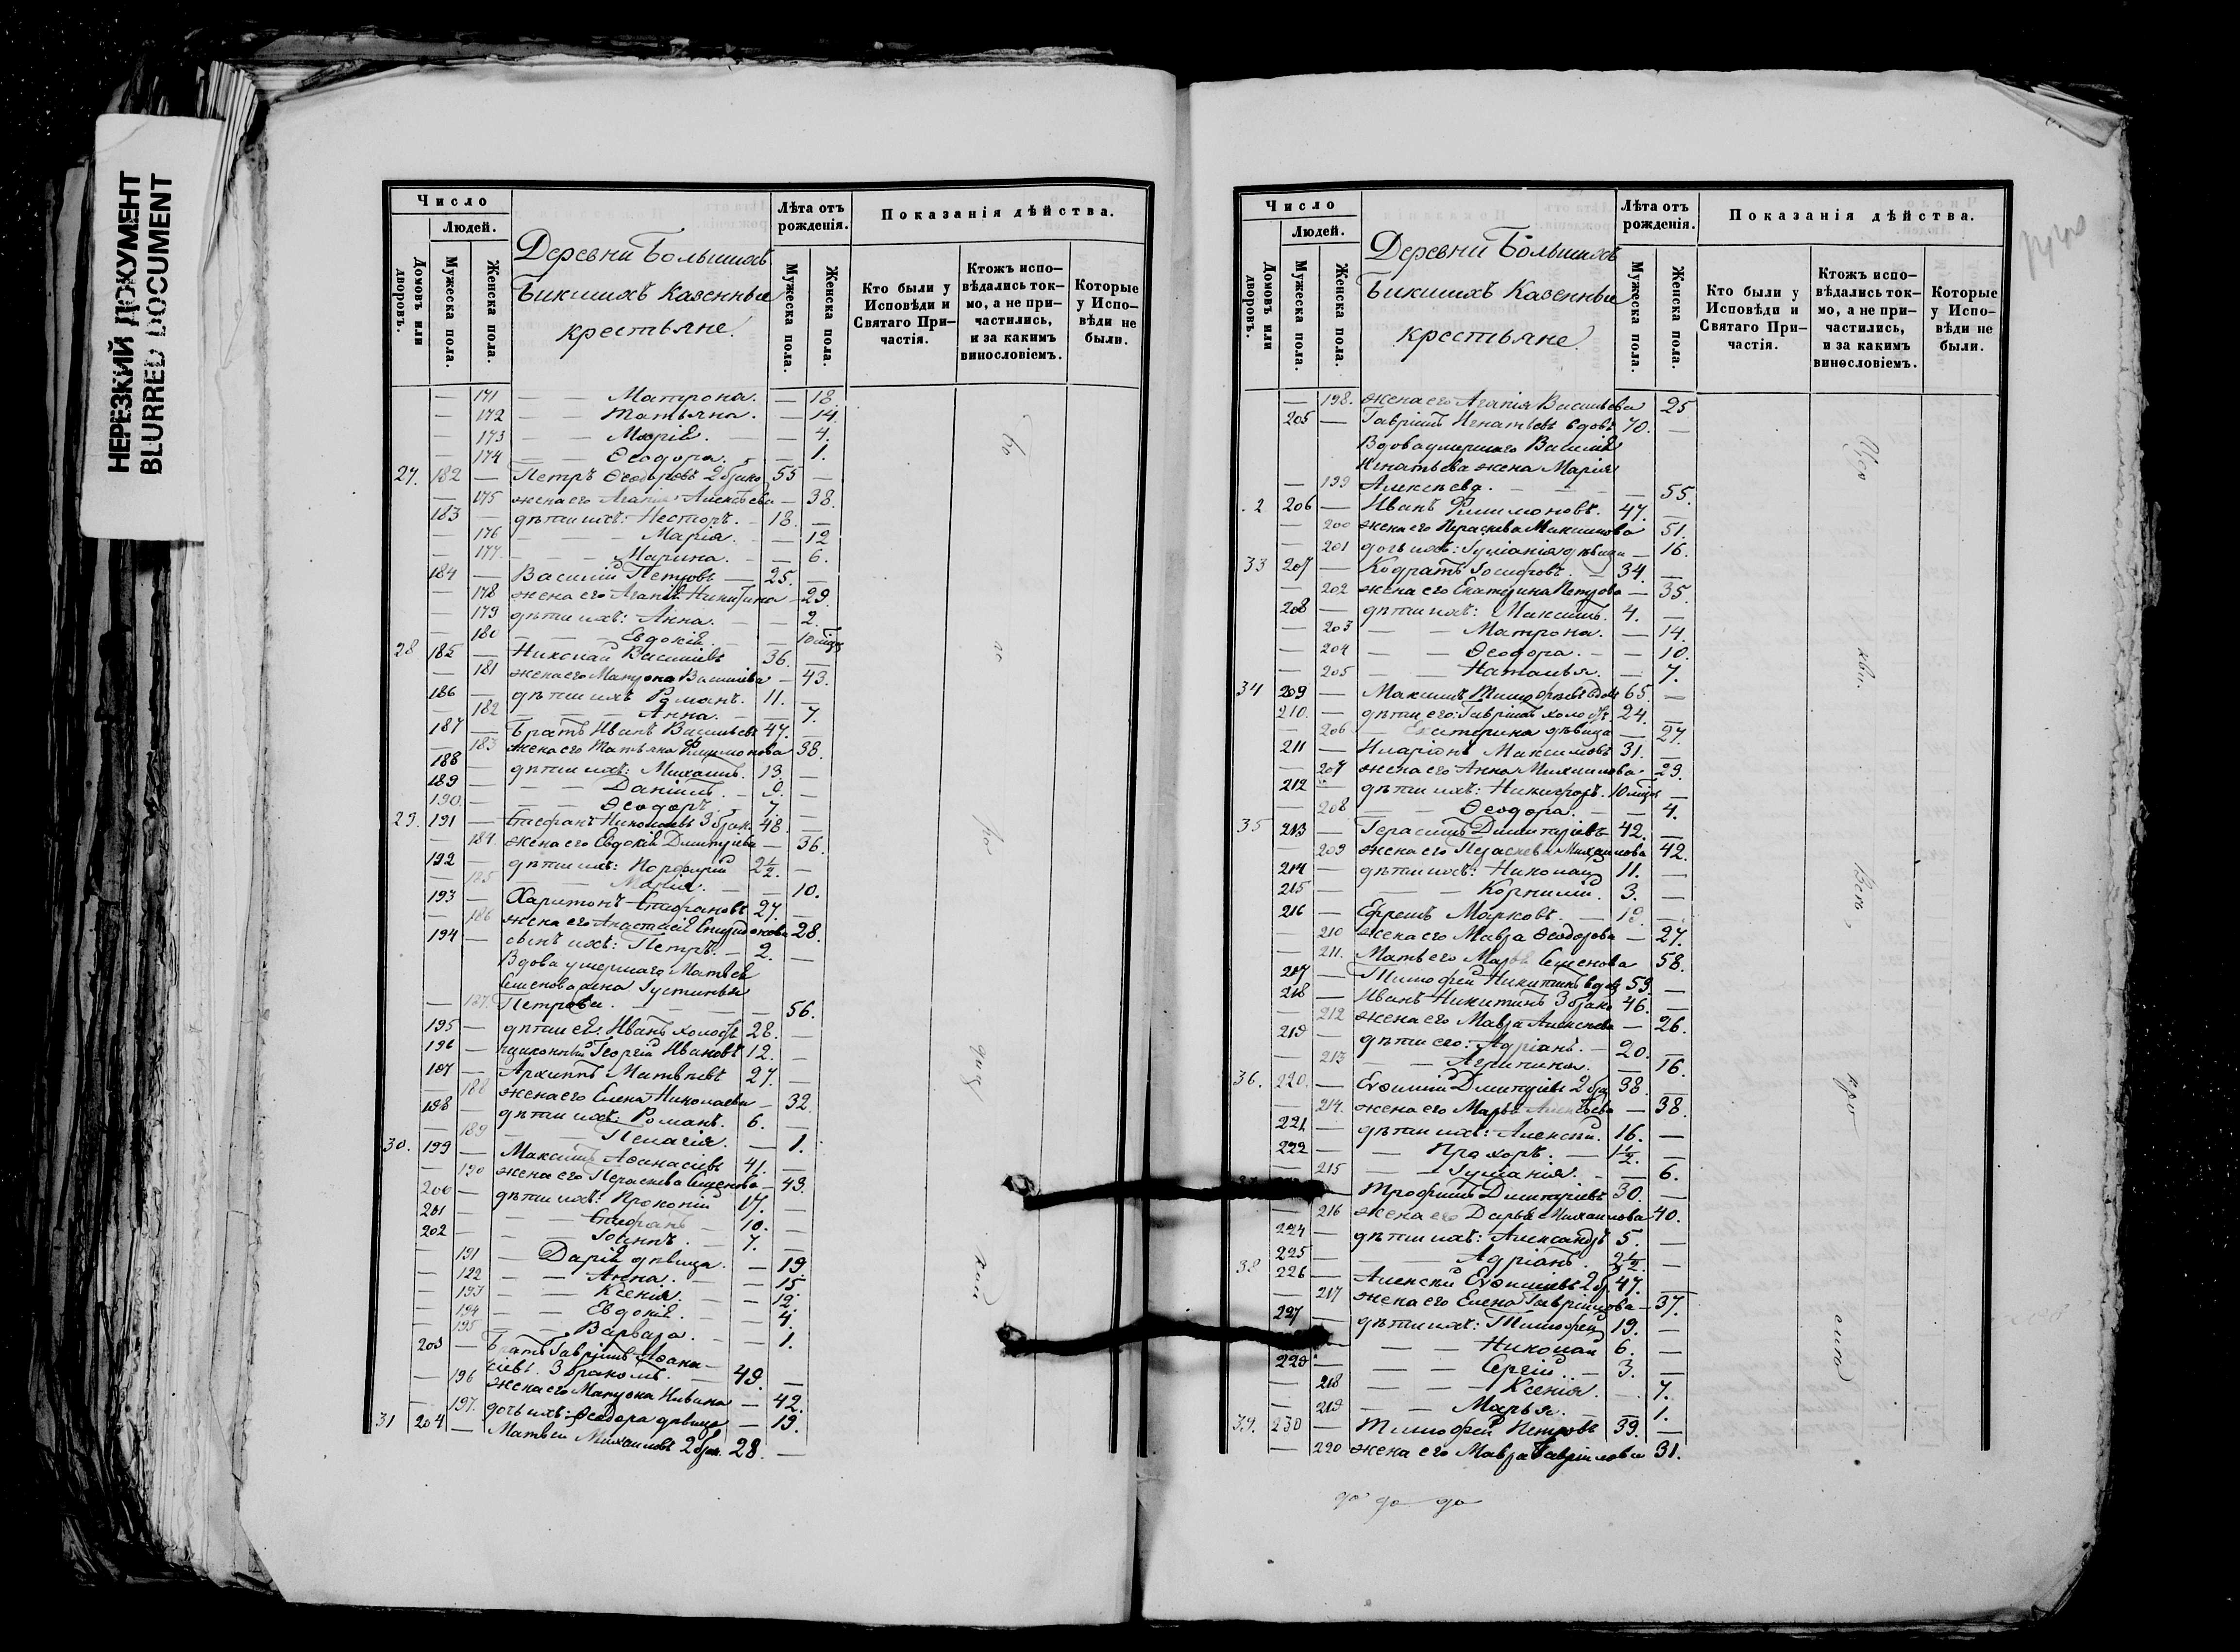 НЕРЕЗКИЙ ДОКУМЕНТ
BLURRED DOCUMENT
Число
Людей.
Домовъ или дворовъ.
Мужеска пола.
Женска пола.
Деревни Большихъ
Бикшихъ Казенные
крестьяне.
Лѣта отъ рожденія.
Мужеска пола.
Женска пола.
Показанія дѣйства.
Кто были у Исповѣди и Святаго Причастія.
Ктожъ исповѣдались токмо, а не причастились, и за какимъ винословіемъ.
Которые у Исповѣди не были.
— 171 — — Матрона. — 18.
— 172 — — Татьяна. — 14.
— 173 — — Марія. — 4.
— 174 — — Ѳеодора. — 1.
27. 182 — Петръ Ѳеодоровъ 2 брако 55 —
— 175 жена его Агапія Алексѣева — 38.
183 — дѣти ихъ: Несторъ. — 18. —
— 176 — — Марія. — 12
— 177 — — Марина. — 6.
184 — Василій Петровъ — 25. —
— 178 жена его Агапія Никитина — 29.
— 179 дѣти ихъ: Анна. — 2.
— 180 — — Евдокія — 10 мцъ
28 185 — Николай Василіевъ 36. —
— 181 жена его Матрона Василіева — 43.
186 — дѣти ихъ Романъ. 11. —
— 182 — — Анна. — 7.
187 — Братъ Иванъ Васильевъ 47. —
— 183 жена его Татьяна Филимонова 38.
188 — дѣти ихъ: Михаилъ. 13. —
189 — — — Даніилъ. — 9. —
190. — — — Ѳеодоръ. 7. —
29. 191 — Стефанъ Николаевъ 3 брак. 48. —
— 184. жена его Евдокія Дмитріева — 36.
192 — дѣти ихъ: Порфирій 2½. —
— 185 — — Марія. — 10.
193 — Харитонъ Стефановъ 27. —
— 186 жена его Анастасія 28.
194 — сынъ ихъ: Петръ. — 2. —
Вдова умершаго Матвея
Семенова жена Іустинья
— 187. Петрова. — 56.
195 — дѣти ея: Иванъ холостъ 28. —
196 — Георгій Ивановъ 12. —
197 — Архиппъ Матвѣевъ 27. —
— 188 жена его Елена Николаева — 32.
198 — дѣти ихъ: Романъ. 6. —
— 189 — — Пелагія. — 1.
30. 199 — Максимъ Аѳанасіевъ 41. —
— 190 жена его Параскева Семенова — 43.
200 — дѣти ихъ: Прокопій 17. —
201 — — — Стефанъ — 10. —
202 — — — Іоаннъ. — 7. —
— 191 — Дарія дѣвица. — 19
— 192 — — Анна. — 15
— 193 — — Ксенія. — 12.
— 194 — — Евдокія. — 4.
— 195 — — Варвара. — 1.
203 — Братъ Гавріилъ Аѳана-
сіевъ. 3 бракомъ. — 49. —
— 196 жена его Матрона Иванова — 42.
— 197. дочь ихъ: Ѳеодора дѣвица — 19.
31 204 — Матвѣй Михаиловъ 2 брак. 28. —
Число
Людей.
Домовъ или дворовъ.
Мужеска пола.
Женска пола.
Деревни Большихъ
Бикшихъ Казенные
крестьяне.
Лѣта отъ рожденія.
Мужеска пола.
Женска пола.
Показанія дѣйства.
Кто были у Исповѣди и Святаго Причастія.
Ктожъ исповѣдались токмо, а не причастились, и за какимъ винословіемъ.
Которые у Исповѣди не были.
— 198. жена его Агапія Васильева 25
205 — Гавріилъ Игнатьевъ вдовъ 70. —
Вдова умершаго Василія
Игнатьева жена Марія
— 199 Алексѣева. — 55.
2 206 — Иванъ Филимоновъ. 47. —
— 200 жена его Параскева Максимова 51.
— 201 дочь ихъ: Іуліанія дѣвица — 16.
33 207 — Кодратъ Іосифовъ. — 34. —
— 202 жена его Екатерина Петрова — 35.
208 — дѣти ихъ: Максимъ. 4. —
— 203 — — Матрона. — 14.
— 204 — — Ѳеодора. — 10.
— 205 — — Наталья. — 7.
34 209 — Максимъ Тимоѳеевъ вдов 65. —
210. — дѣти его: Гавріилъ холостъ. 24. —
— 206 — Екатерина дѣвица — 27.
211 — Иларіонъ Максимовъ 31. —
— 207 жена его Анна Михаилова 29.
212 — дѣти ихъ: Никифоръ. 10 мцъ —
— 208 — — Ѳеодора. — 4.
35 213 — Герасимъ Димитріевъ 42. —
— 209 жена его Параскева Михаилова 42.
214 — дѣти ихъ: Николай 11. —
215 — — — Корнилій. 3. —
216 — Ефремъ Марковъ. — 19. —
— 210 жена его Мавра Ѳеодорова — 27.
— 211. Мать его Марѳа Семенова 58.
217 — Тимофей Никитинъ вдов 59 —
218 — Иванъ Никитинъ 3 брако 46. —
— 212 жена его Мавра Алексѣева — 26.
219 — дѣти его: Адріанъ. — 20. —
— 213 — — Агрипина. — 16.
36. 220. — Евѳимій Дмитріевъ 2 бра 38. —
— 214. жена его Марѳа Алексѣева — 38.
221 — дѣти ихъ: Алексѣй. 16. —
222 — — — Прохоръ. — 1½. —
— 215 — — Іуліанія. — 6.
— Трофимъ Димитріевъ 30. —
— 216 жена его Дарья Михаилова 40.
224 — дѣти ихъ: Александръ 5. —
225 — — — Адріанъ. 2½. —
38 226 — Алексѣй Евѳиміевъ 2 б. 47. —
— 217 жена его Елена Гавріилова — 37.
227 — дѣти ихъ: Тимофей 19. —
— — — Николай 6. —
229 — — — Сергій. — 3. —
— 218 — — Ксенія. — 7.
— 219 — — Марья. — 1.
39. 230 — Тимофей Петровъ 39. —
— 220 жена его Мавра Гавріилова 31.